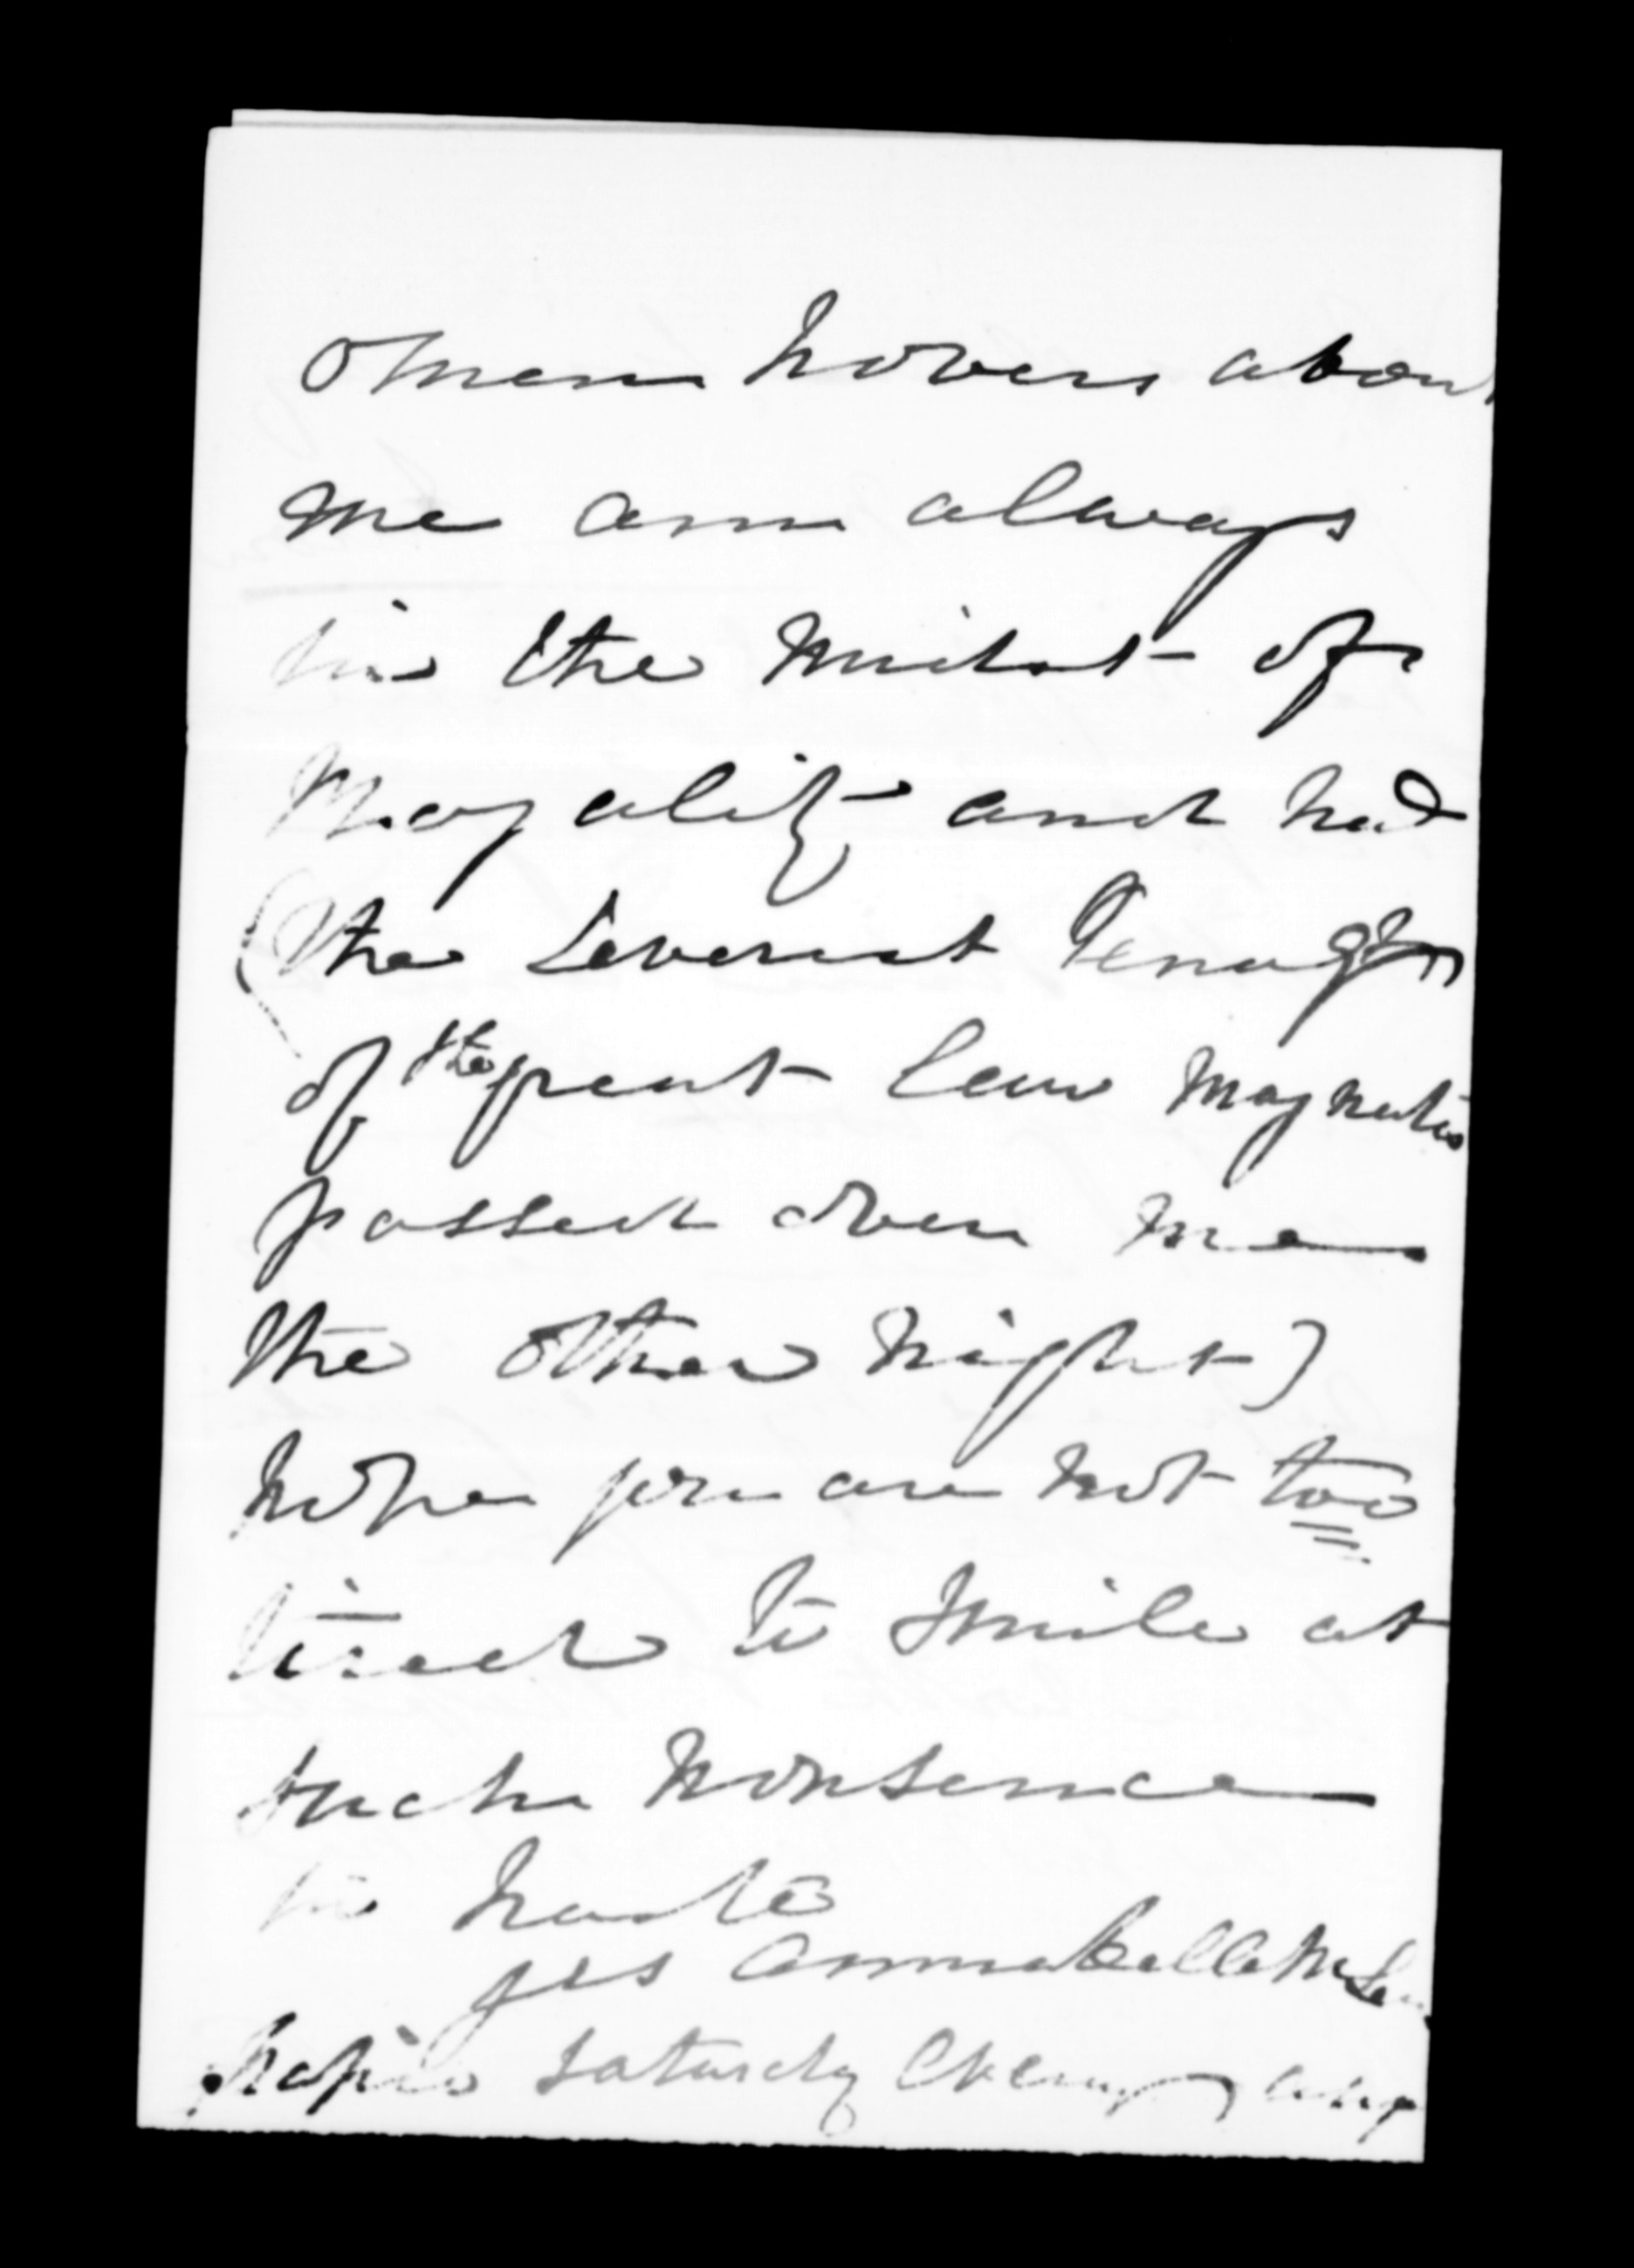 omen hovers about
me am always
in the midst of
Magality and had
(the severest
of the great law magnates
passed over me
the other night)
hope you are not too
tired to smile at
such nonsence
in haste
yrs Annabella McLean
Napier Saturday Eveng